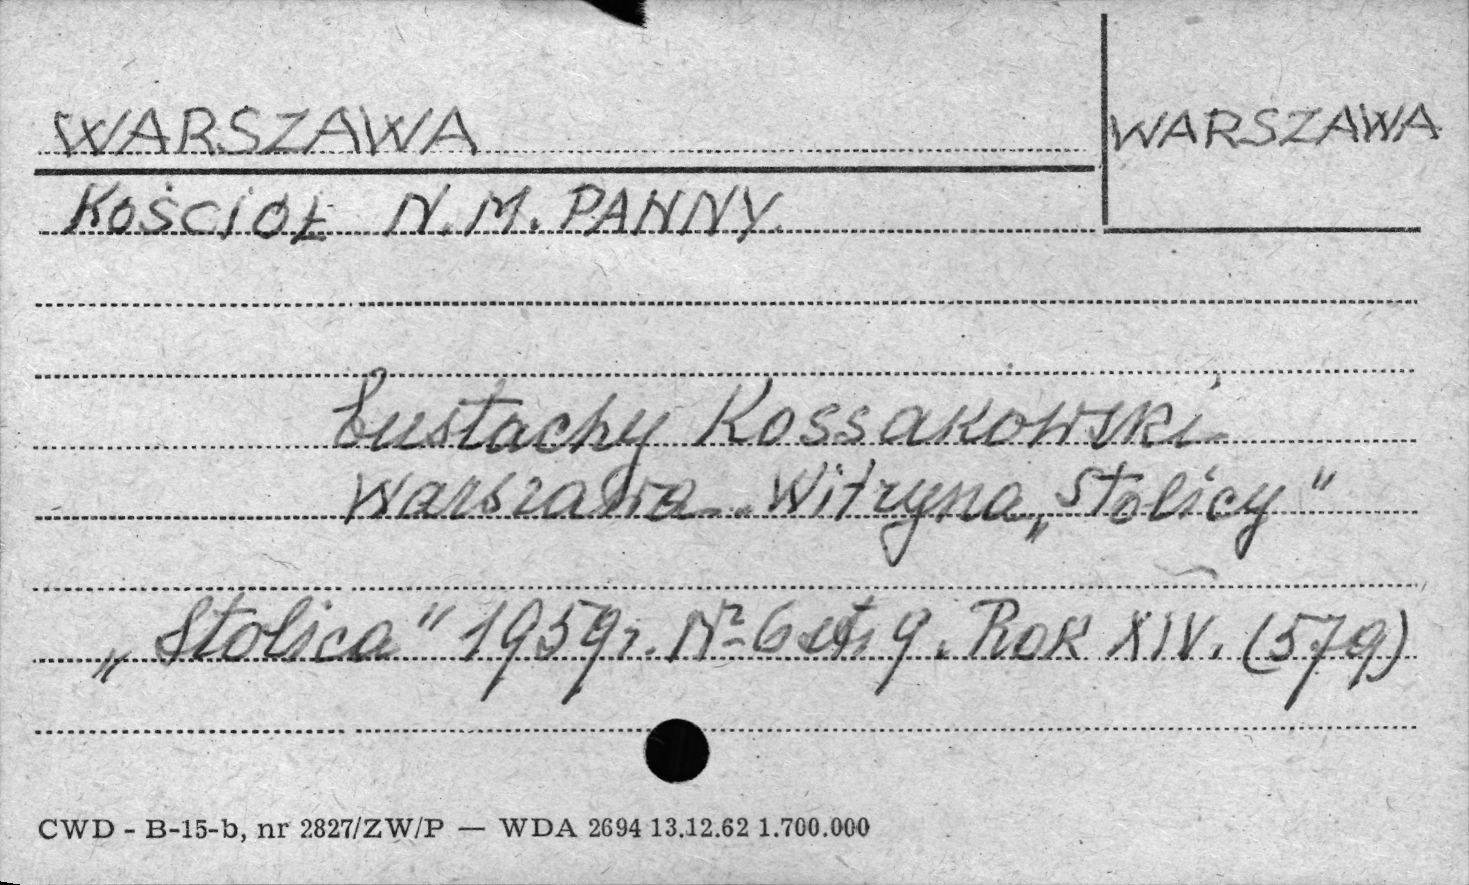 WARSZAWA
WARSZAWA
KOŚCIÓŁ N. M. PANNY.
Eustachy Kossakowski
Warszawa. Witryna „Stolicy"
„Stolica" 1959 r. Nº 6 str. 9. Rok XIV. (579)
CWD - B-15-b, nr 2827/ZW/P — WDA 2694 13.12.62 1.700.000